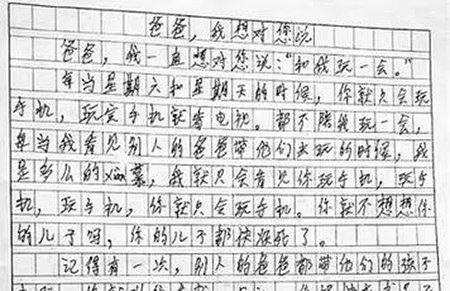 爸爸，我想对您说
爸爸，我一直想对您说："和我玩一会。"
每当星期六和星期天的时候，你就只会玩
手机，玩完手机就看电视。都不陪我玩一会，
每当我看见别人的爸爸带他们去玩的时候，我
是多么的xian慕，我就只会看见你玩手机，玩手
机，玩手机，你就只会玩手机。你就不想想你
的儿子吗，你的儿子都快没死了。
记得有一次，别人的爸爸都带他们的孩子